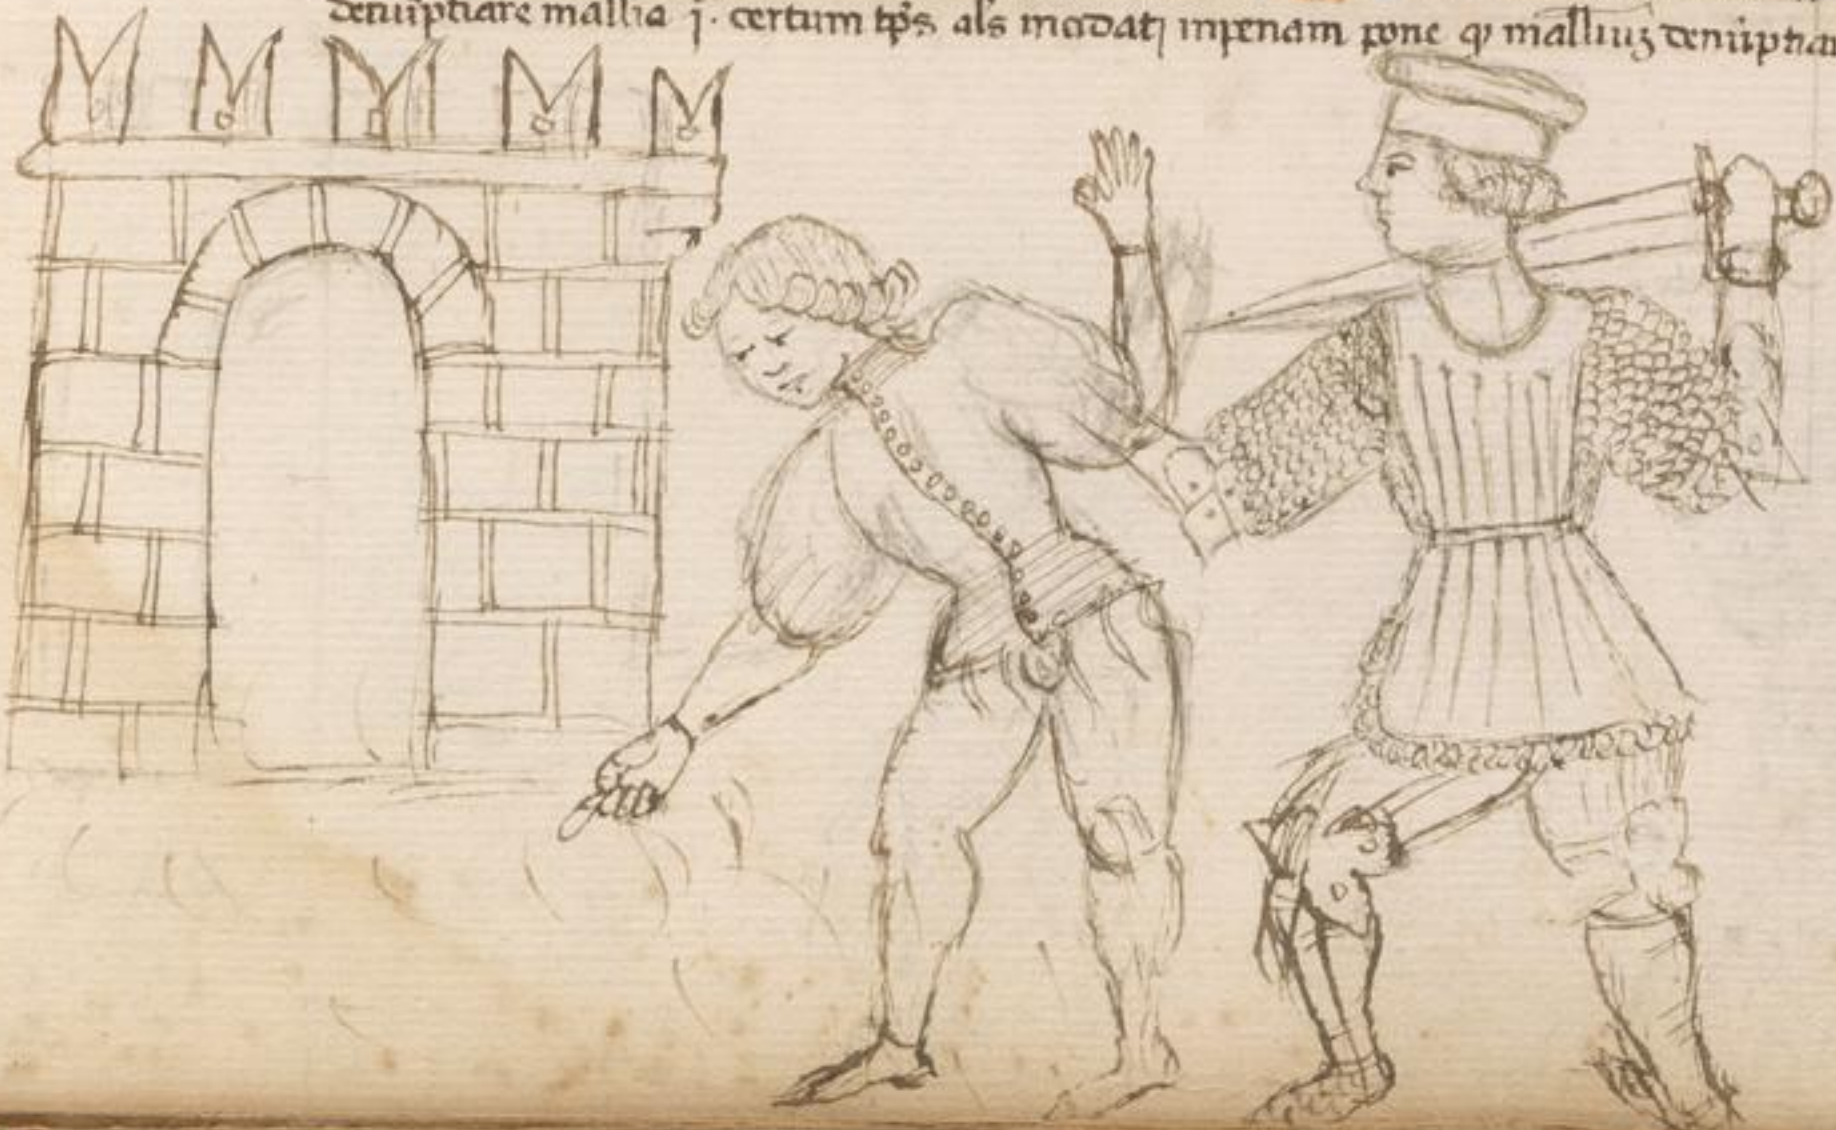 denūptiare mallia j · certum tp̄s als mādatj inpenam pone qͥ malliuʒ denūptiar